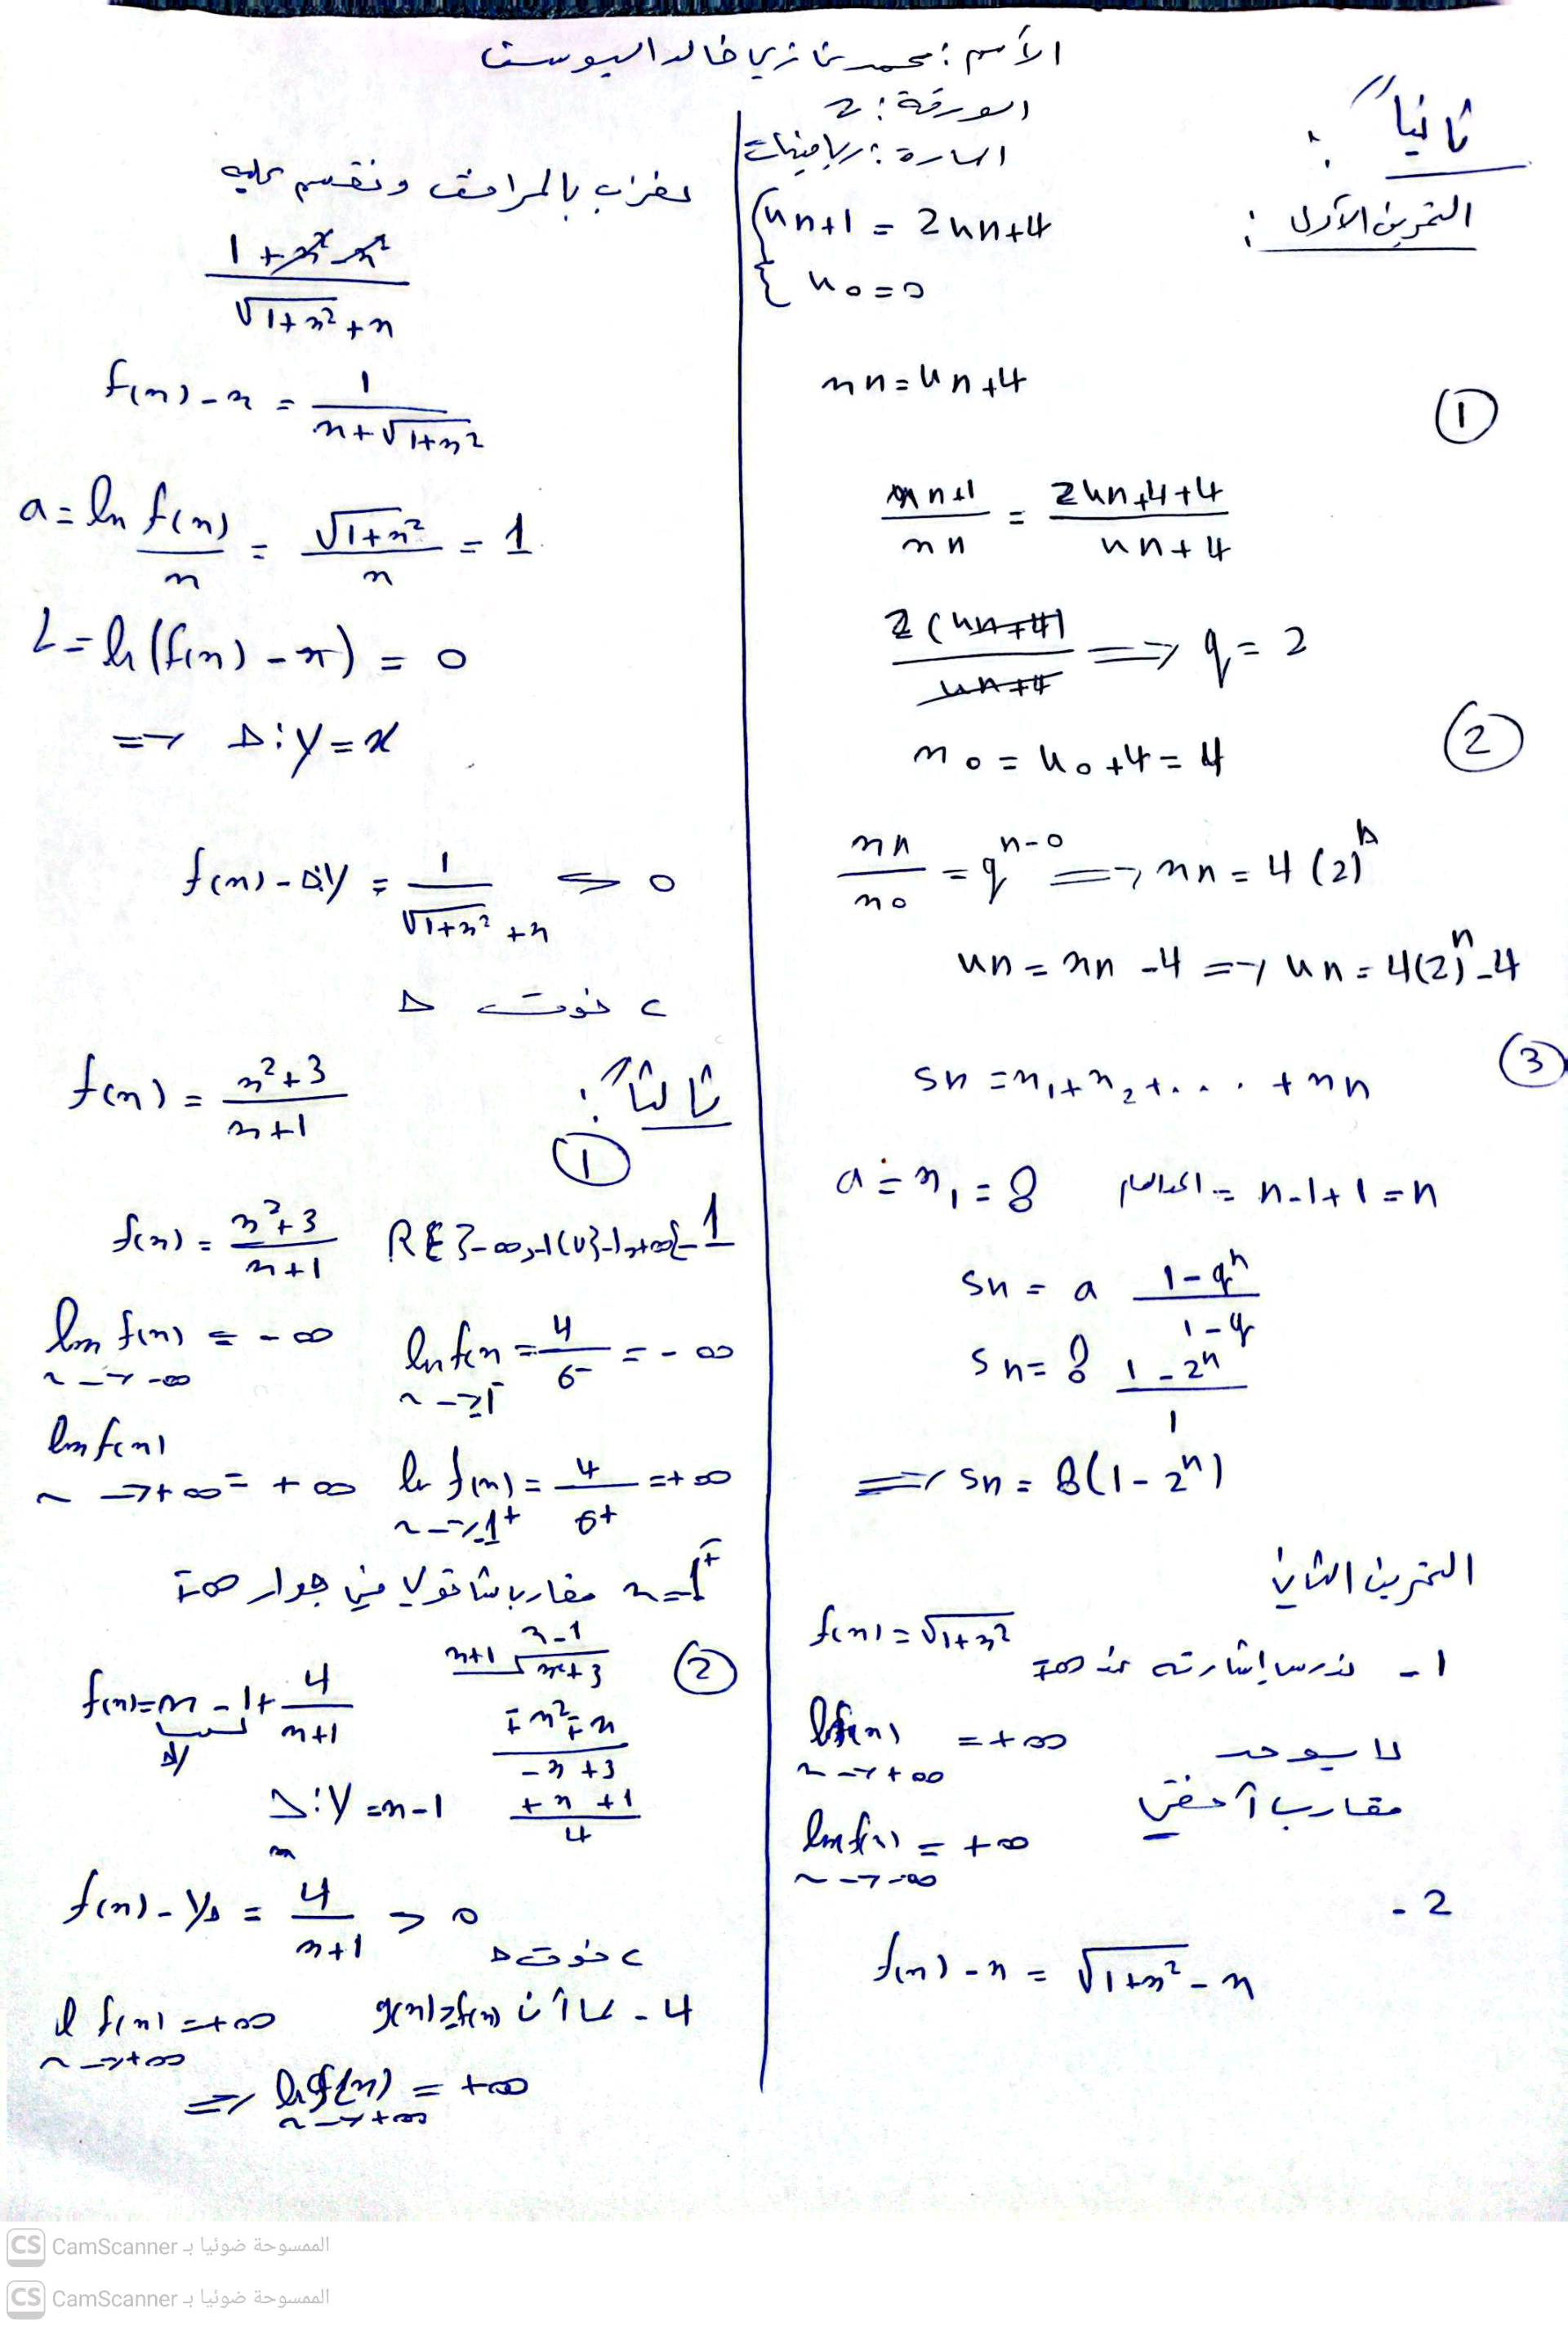 الأسم : محمد غازي خالد اليوسف
الورقة : 2
المادة : رياضيات
ثانياً :
التمرين الأول :
{ un+1 = 2un+4
{ u0 = 0
xn = un+4
①
xn+1 / xn = 2un+4+4 / un+4
2(un+4) / un+4 ⟹ q = 2
②
x0 = u0+4 = 4
xn / x0 = q^n-0 ⟹ xn = 4(2)^n
un = xn -4 ⟹ un = 4(2)^n -4
③
sn = x1 + x2 + .... + xn
a = x1 = 8
n-1+1 = n
sn = a 1-q^n / 1-q
sn = 8 1-2^n / 1
⟹ sn = 8(1-2^n)
التمرين الثاني
f(x) = √1+x²
1 - ندرس إشارته عند ∓∞
lim f(x) = +∞
x → +∞
لا يوجد
مقارب أفقي
lim f(x) = +∞
x → -∞
2 -
f(x) - x = √1+x² - x
نضرب بالمرافق ونقسم عليه
1 + x² - x² / √1+x² + x
f(x) - x = 1 / x+√1+x²
a = ln f(x) / x = √1+x² / x = 1
L = ln (f(x) - x) = 0
⟹ Δ: y = x
f(x) - Δy = 1 / √1+x² +x > 0
c فوق Δ
ثالثاً :
f(x) = x²+3 / x+1
①
f(x) = x²+3 / x+1 R∈]-∞,-1[∪]-1,+∞[
lim f(x) = -∞
x → -∞
ln f(x) = 4 / 0- = -∞
x → -1-
lim f(x)
x → +∞ = +∞
ln f(x) = 4 / 0+ = +∞
x → -1+
x = -1 مقارب شاقولي في جوار ∓∞
②
x-1
x+1 x²+3
∓x² ∓x
-x +3
+x +1
4
f(x) = x - 1 + 4 / x+1
yΔ
Δ: y = x-1
f(x) - yΔ = 4 / x+1 > 0
c فوق Δ
4 - لما أن g(x) ≥ f(x)
l f(x) = +∞
x → +∞
⟹ ln g(x) = +∞
x → +∞
CS CamScanner الممسوحة ضوئيا بـ
CS CamScanner الممسوحة ضوئيا بـ